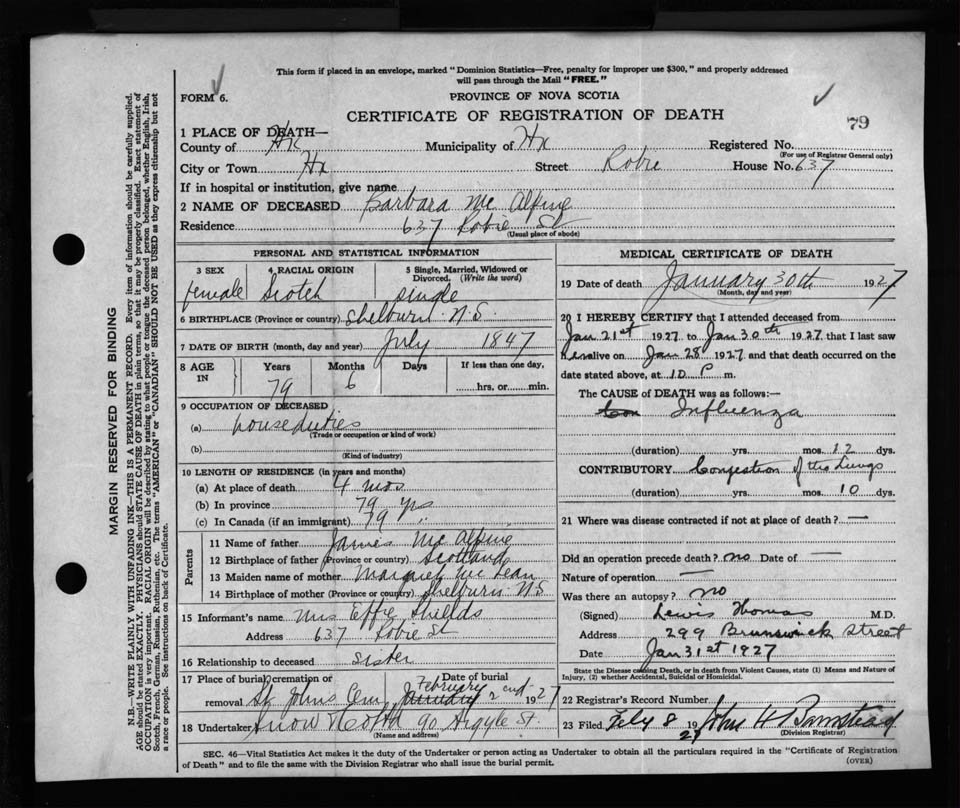 This form if placed in an envelope, marked "Dominion Statistics—Free, penalty for improper use $300," and properly addressed
will pass through the Mail "FREE."
FORM 6.
PROVINCE OF NOVA SCOTIA
CERTIFICATE OF REGISTRATION OF DEATH
79
1 PLACE OF DEATH—
County of Hx Municipality of Hx Registered No.
(For use of Registrar General only)
City or Town Hx Street Robie House No. 637
If in hospital or institution, give name
2 NAME OF DECEASED Barbara Mc Alpine
Residence 637 Robie St
(Usual place of abode)
PERSONAL AND STATISTICAL INFORMATION
3 SEX 4 RACIAL ORIGIN 5 Single, Married, Widowed or Divorced. (Write the word)
female Scotch single
6 BIRTHPLACE (Province or country) Shelburn N.S.
7 DATE OF BIRTH (month, day and year) July 1847
8 AGE IN Years Months Days If less than one day,
79 6 hrs. or min.
9 OCCUPATION OF DECEASED
(a) house duties
(Trade or occupation or kind of work)
(b)
(Kind of industry)
10 LENGTH OF RESIDENCE (in years and months)
(a) At place of death 4 mos
(b) In province 79 yrs
(c) In Canada (if an immigrant) 79 "
Parents
11 Name of father James Mc Alpine
12 Birthplace of father (Province or country) Scotland
13 Maiden name of mother Margaret Mc Lean
14 Birthplace of mother (Province or country) Shelburn N.S
15 Informant's name Mrs Effie Shields
Address 637 Robie St
16 Relationship to deceased sister
17 Place of burial, cremation or removal Date of burial
St. Johns Cem January February 2nd 1927
18 Undertaker Snow 90 Argyle St.
(Name and address)
MEDICAL CERTIFICATE OF DEATH
19 Date of death January 30th 1927
(Month, day and year)
20 I HEREBY CERTIFY that I attended deceased from
Jan 21st 1927 to Jan 30th 1927 that I last saw
her alive on Jan 28 1927 and that death occurred on the
date stated above, at 10 P m.
The CAUSE of DEATH was as follows:—
Influenza
(duration) yrs. mos. 12 dys.
CONTRIBUTORY Congestion of the Lungs
(duration) yrs. mos. 10 dys.
21 Where was disease contracted if not at place of death? —
Did an operation precede death? no Date of —
Nature of operation —
Was there an autopsy? no
(Signed) Lewis Thomas M.D.
Address 299 Brunswick Street
Date Jan 31st 1927
State the Disease causing Death, or in death from Violent Causes, state (1) Means and Nature of
Injury, (2) whether Accidental, Suicidal or Homicidal.
22 Registrar's Record Number
23 Filed Feby 8 1927 John H Barnstead
(Division Registrar)
SEC. 46—Vital Statistics Act makes it the duty of the Undertaker or person acting as Undertaker to obtain all the particulars required in the "Certificate of Registration
of Death" and to file the same with the Division Registrar who shall issue the burial permit.
(OVER)
MARGIN RESERVED FOR BINDING
N.B.—WRITE PLAINLY WITH UNFADING INK—THIS IS A PERMANENT RECORD. Every item of information should be carefully supplied.
AGE should be stated EXACTLY. PHYSICIANS should STATE CAUSE OF DEATH in plain terms, so that it may be properly classified. Exact statement of
OCCUPATION is very important. RACIAL ORIGIN will be described by stating to what people or tongue the deceased person belonged, whether English, Irish,
Scotch, French, German, Russian, Ruthenian, etc. The terms "AMERICAN" or "CANADIAN" SHOULD NOT BE USED as they express citizenship but not
a race or people. See instructions on back of Certificate.